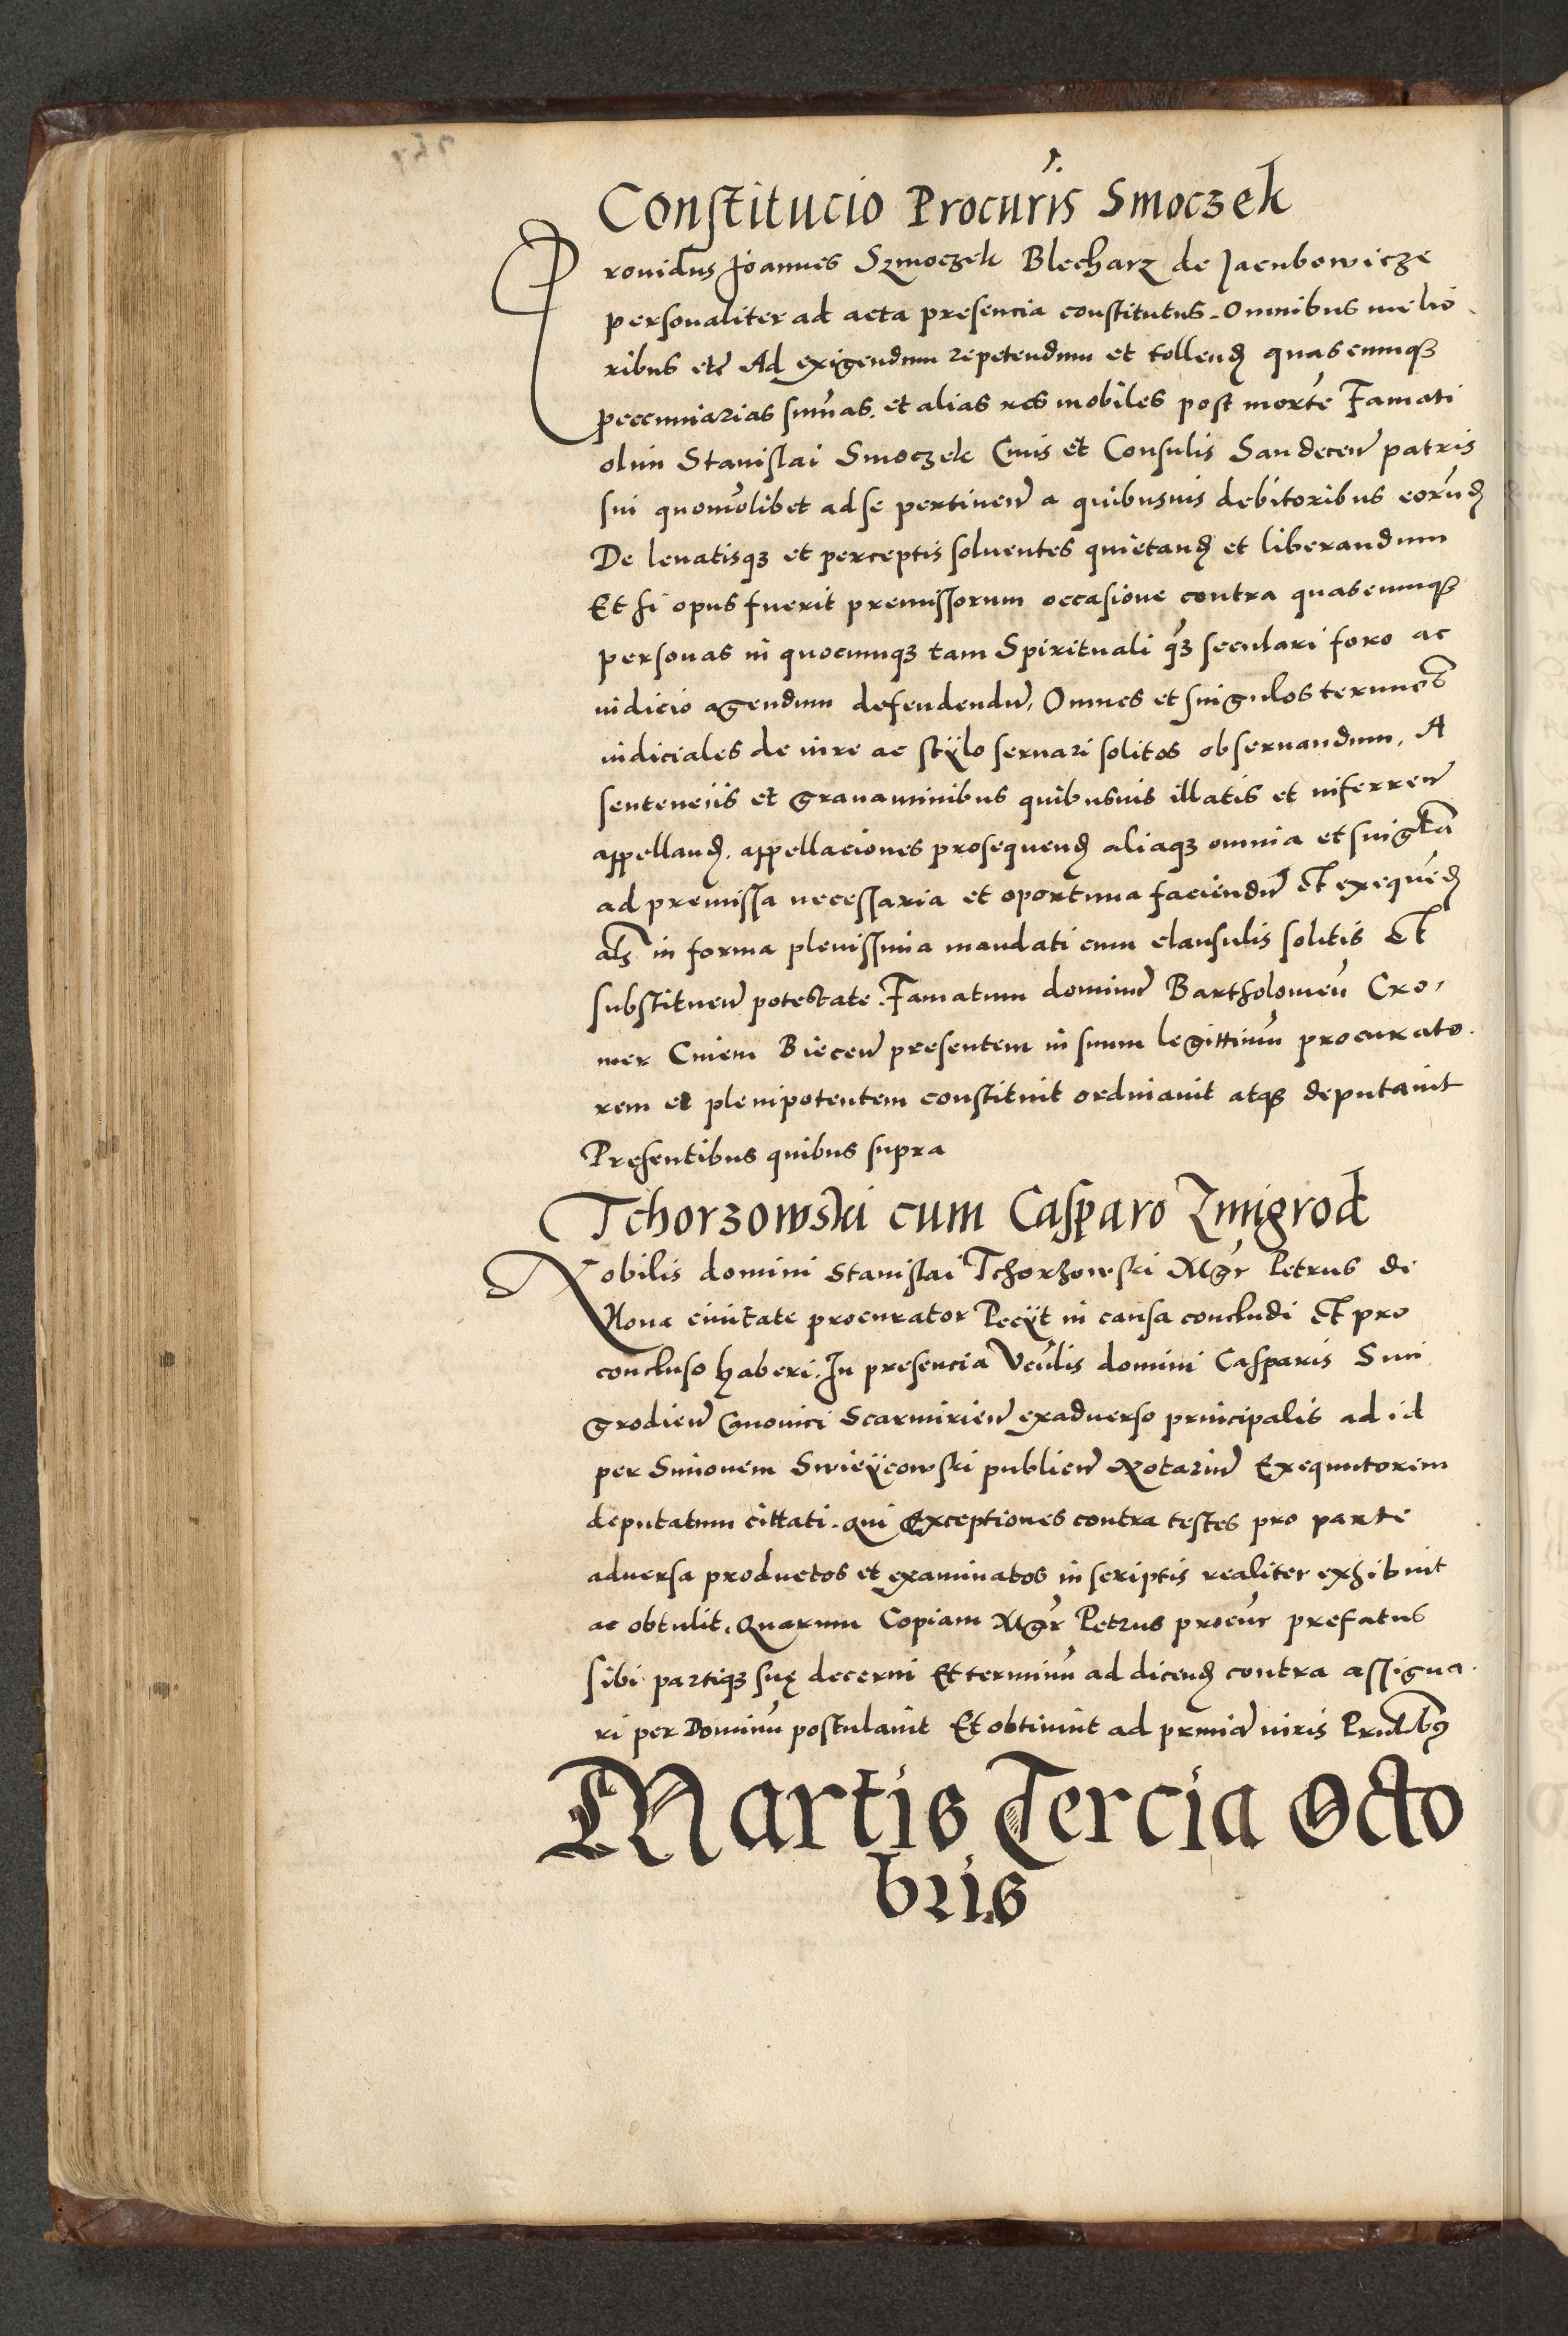 Constitucio Procur̃is Smoczek
Prouidus Joannes Szmoczek Blecharz de Jacubowicze
personaliter ad acta presencia constitutus. Omnibus melio
ribus etc̃ Ad exigendum repetendum et tollenđ quascumqꝫ
peccuniarias sum̃as. et alias res mobiles post morte᷑ Famati
olim Stanislai Smoczek Ciuis et Consulis Sandecen̄ patris
sui quomo᷑libet ad se pertinen̄ a quibusuis debitoribus eoru᷑đ
De leuatisqꝫ et perceptis soluentes quietanđ et liberandum
Et si opus fuerit premissorum occasione contra quascumqꝫ
personas in quocumqꝫ tam Spirituali q᷑ꝫ seculari foro ac
iudicio agendum defendendū, Omnes et singulos termi᷑os
iudiciales de iure ac stÿlo seruari solitos obseruandum, A
sentenciis et grauaminibus quibusuis illatis et inferren̄
appellanđ. appellaciones prosequenđ aliaqꝫ omnia et singl̃a
ad premissa necessaria et oportuna faciendū et exeque᷑đ
al̃s in forma plenissima mandati cum clausulis solitis et
substituen̄ potestate. Famatum dominū Bartholomeu᷑ Cro,
mer Ciuem Biecen̄ presentem in suum legittimu᷑ procurato.
rem et plenipotentem constituit ordinauit atqꝫ deputauit
Pręsentibus quibus supra
Tchorzowski cum Casparo Zmigrod
Nobilis domini Stanislai Tchorzowski Mgr̃ Petrus de
Noua ciuitate procurator Peciÿt in causa concludi et pro
concluso haberi. In presencia Ven̄lis domini Casparis Smi
grodien̄ Canonici Scarmirien̄ exaduerso principalis ad id
per Simonem Swieÿcowski publicū Notariū Exequutorem
deputatum cittati. qui Exceptiones contra testes pro parte
aduersa productos et examinatos in scriptis realiter exhibuit
ac obtulit. Quarum Copiam Mgr̃ Petrus procur̃ prefatus
sibi partiqꝫ suę decerni Et terminu᷑ ad dicenđ contra assigna.
ri per Dominu᷑ postulauit Et obtinuit ad primā iuris Pr̃ntibus
Martis Tercia Octo
bris